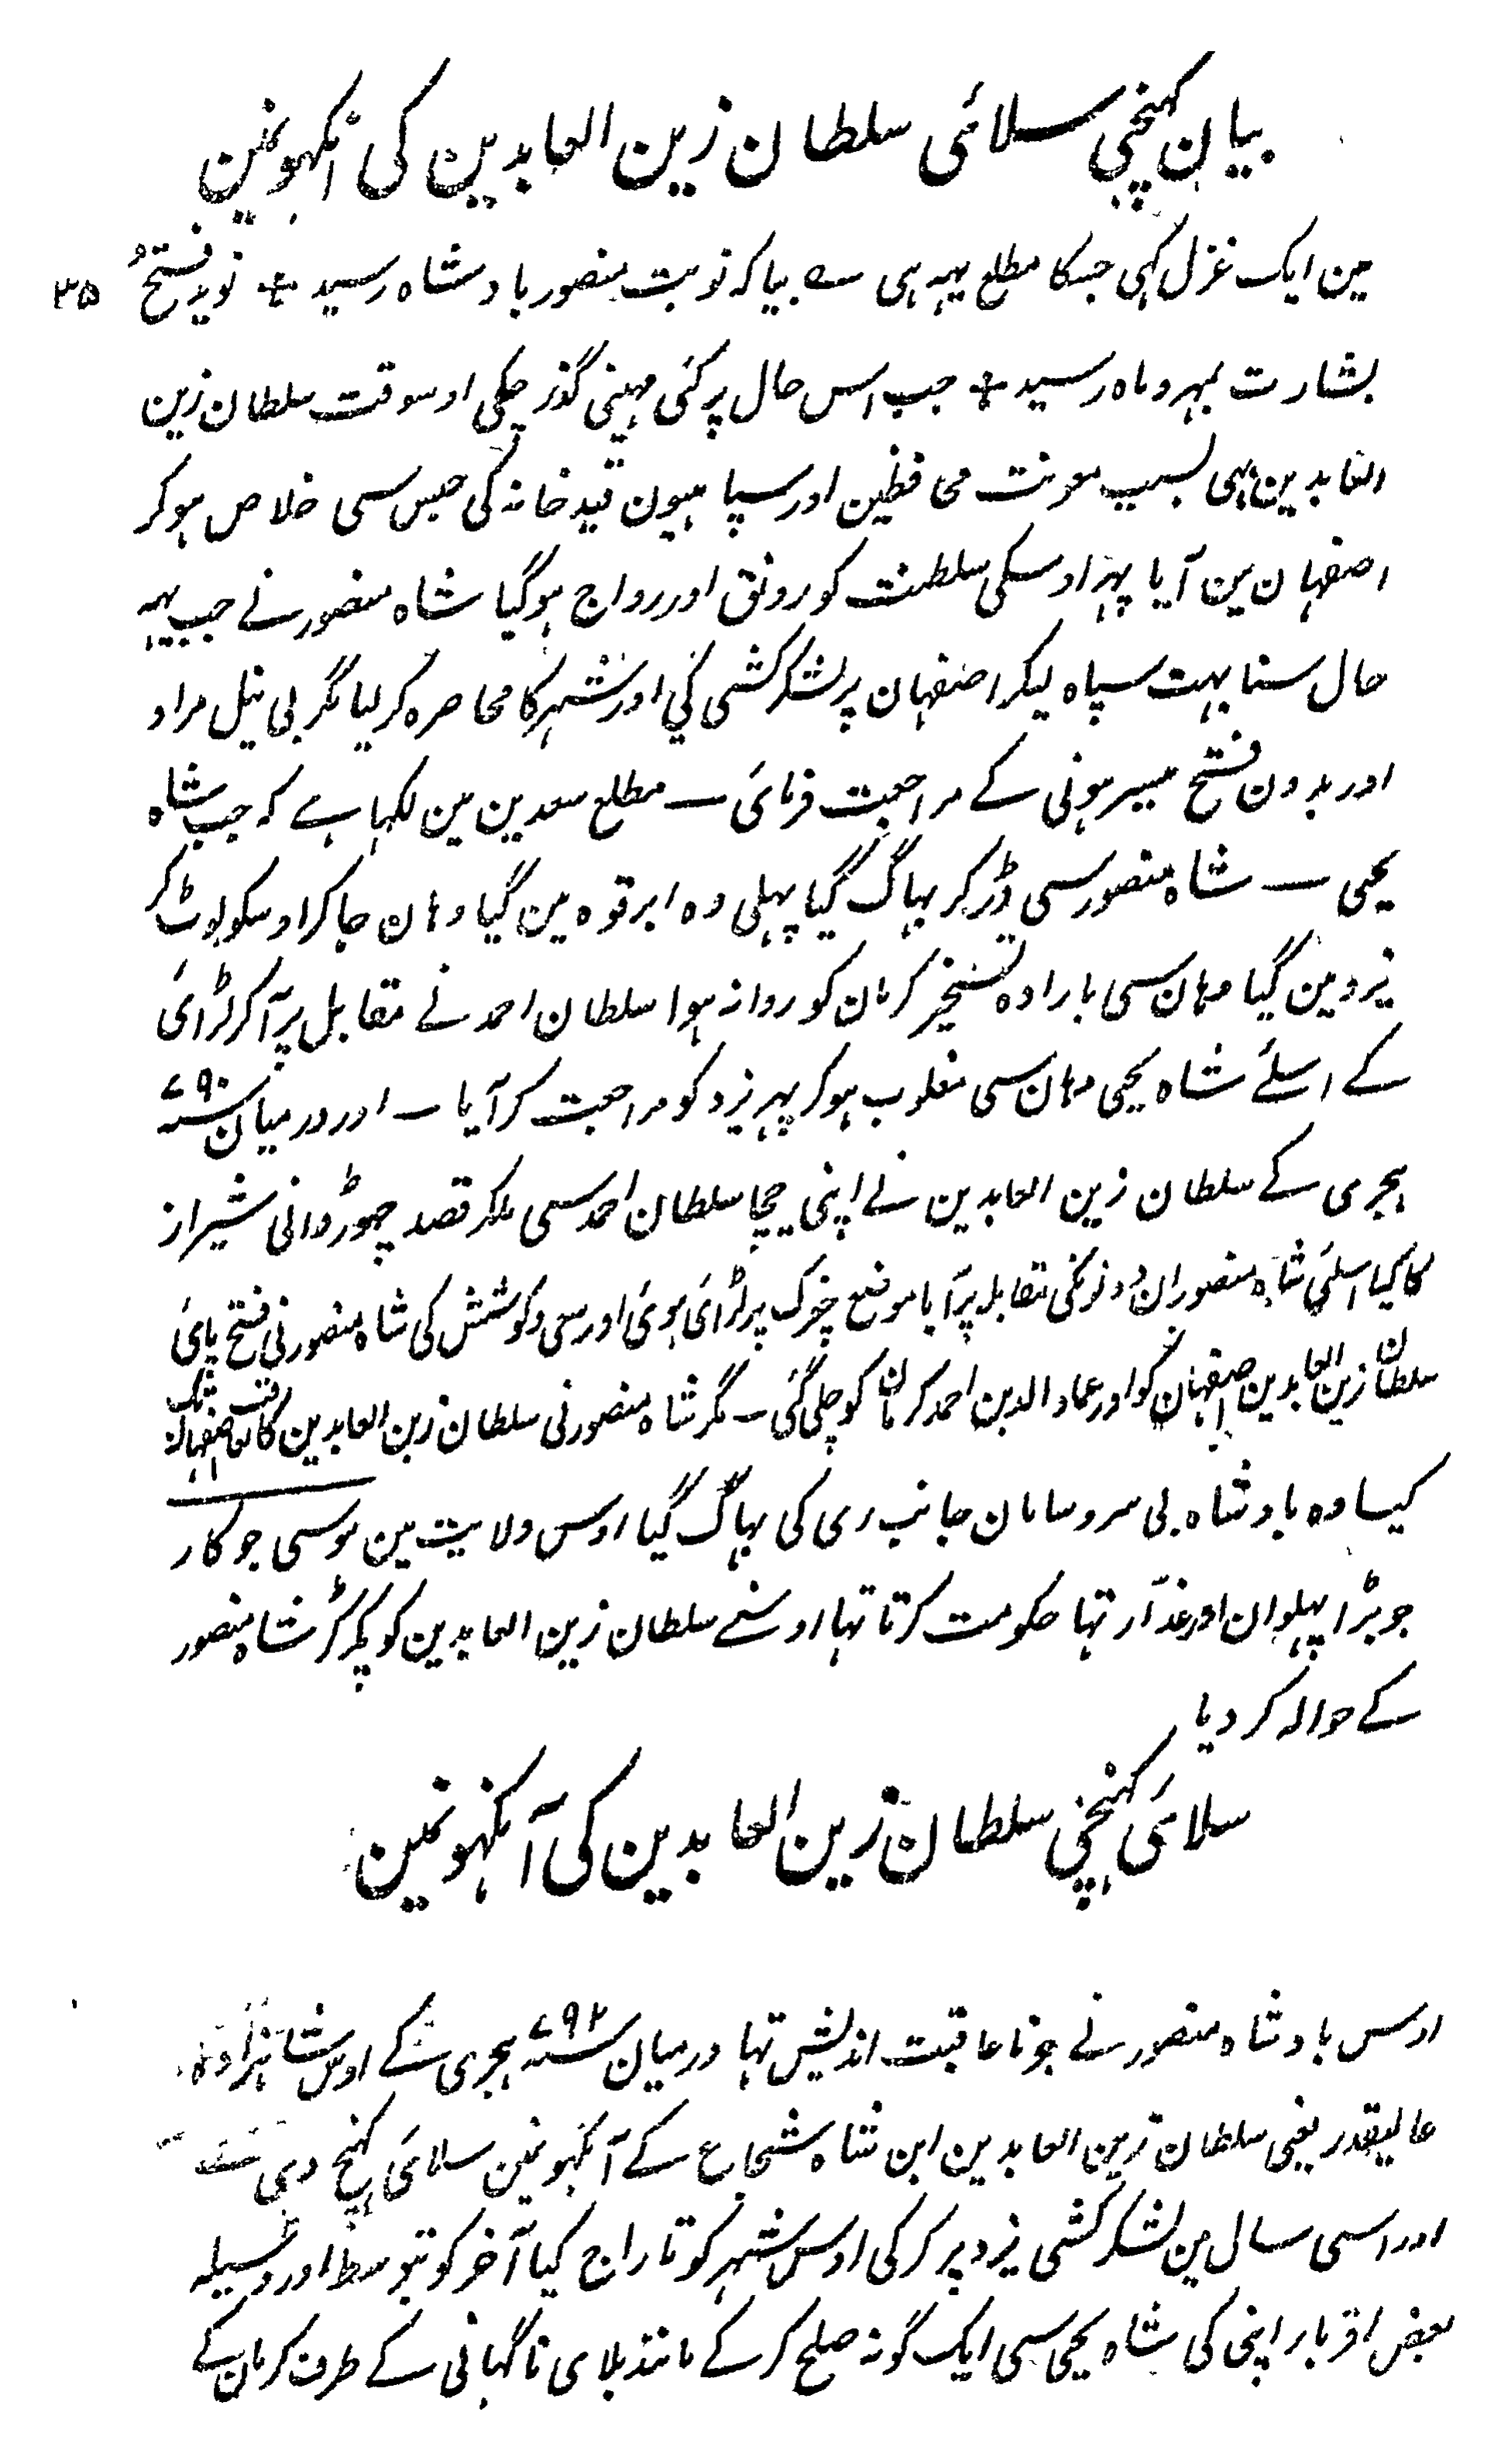 بیان کھنچی سلائی سلطان زین العابدین کی انکھونمین
۳۵
مین ایک غزل کہی جسکا مطلع یہہ ہی ؎ بیا کہ نوبت منصور بادشاہ رسید + نوید فتح و
بشارت بمہر و ماہ رسید + جب اس حال پر کئی مہینی گذر چکی اوسوقت سلطان زین
العابدین بہی بسبب معونت محافظین اور سپاہیون قیدخانہ کی حبس سی خلاص ہوکر
اصفہان مین آیا پہر اوسکی سلطنت کو رونق اور رواج ہوگیا شاہ منصور نے جب یہہ
حال سنا بہت سپاہ لیکر اصفہان پر لشکر کشی کی اور شہر کا محاصرہ کر لیا مگر بی نیل مراد
اور بدون فتح میسر ہونی کے مراجعت فرمائی ــ مطلع سعدین مین لکہا ہے کہ جب شاہ
یحیی ــ شاہ منصور سی ڈر کر بہاگ گیا پہلی وہ ابرقوہ مین گیا وہان جاکر اوسکو لوٹ کر
یزد مین گیا وہان سی بارادہ تسخیر کرمان کو روانہ ہوا سلطان احمد نے مقابل پر آ کر لڑائی
کے اسلئے شاہ یحیی وہان سی مغلوب ہوکر پہر یزد کو مراجعت کر آیا ــ اور درمیان سنہ ۷۹۰
ہجری کے سلطان زین العابدین نے اپنی چچا سلطان احمد سی ملکر قصد چہوڑوانی شیراز
کا کیا اسلئی شاہ منصور ان دونونکی مقابلہ پر آیا موضع چرک پر لڑائی ہوئی اور سعی و کوشش کی شاہ منصور نی فتح پائی
سلطان زین العابدین اصفہان کو اور عماد الدین احمد کرمان کو چلی گئی ــ مگر شاہ منصور نی سلطان زین العابدین کا تعاقب اصفہان تک
کیسا وہ بادشاہ بی سر و سامان جانب ری کی بہاگ گیا اوس ولایت مین موسی جوکار
جو بڑا پہلوان اور غدّار تہا حکومت کرتا تہا اوسنے سلطان زین العابدین کو پکڑ کر شاہ منصور
کے حوالہ کر دیا
سلائی کھنچی سلطان زین العابدین کی آنکھونمین
اوس بادشاہ منصور نے جو ناعاقبت اندیش تہا درمیان سنہ ۷۹۲ ہجری کے اوس شاہزادہ
عالیقدر یعنی سلطان زین العابدین ابن شاہ شجاع کے آنکھونمین سلائی کھنچ دی
اور اسی سال مین لشکر کشی یزد پر کرکی اوس شہر کو تاراج کیا آخر کو بتوسط اور وسیلہ
بعض اقربار اپنی کی شاہ یحیی سی ایک گونہ صلح کر کے مانند بلای ناگہانی کے طرف کرمان کے